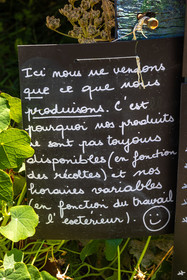 Ici nous ne vendons
que ce que nous
produisons. C'est
pourquoi nos produits
ne sont pas toujours
disponibles (en fonction
des récoltes) et nos
horaires variables
(en fonction du travail
l'extérieur).